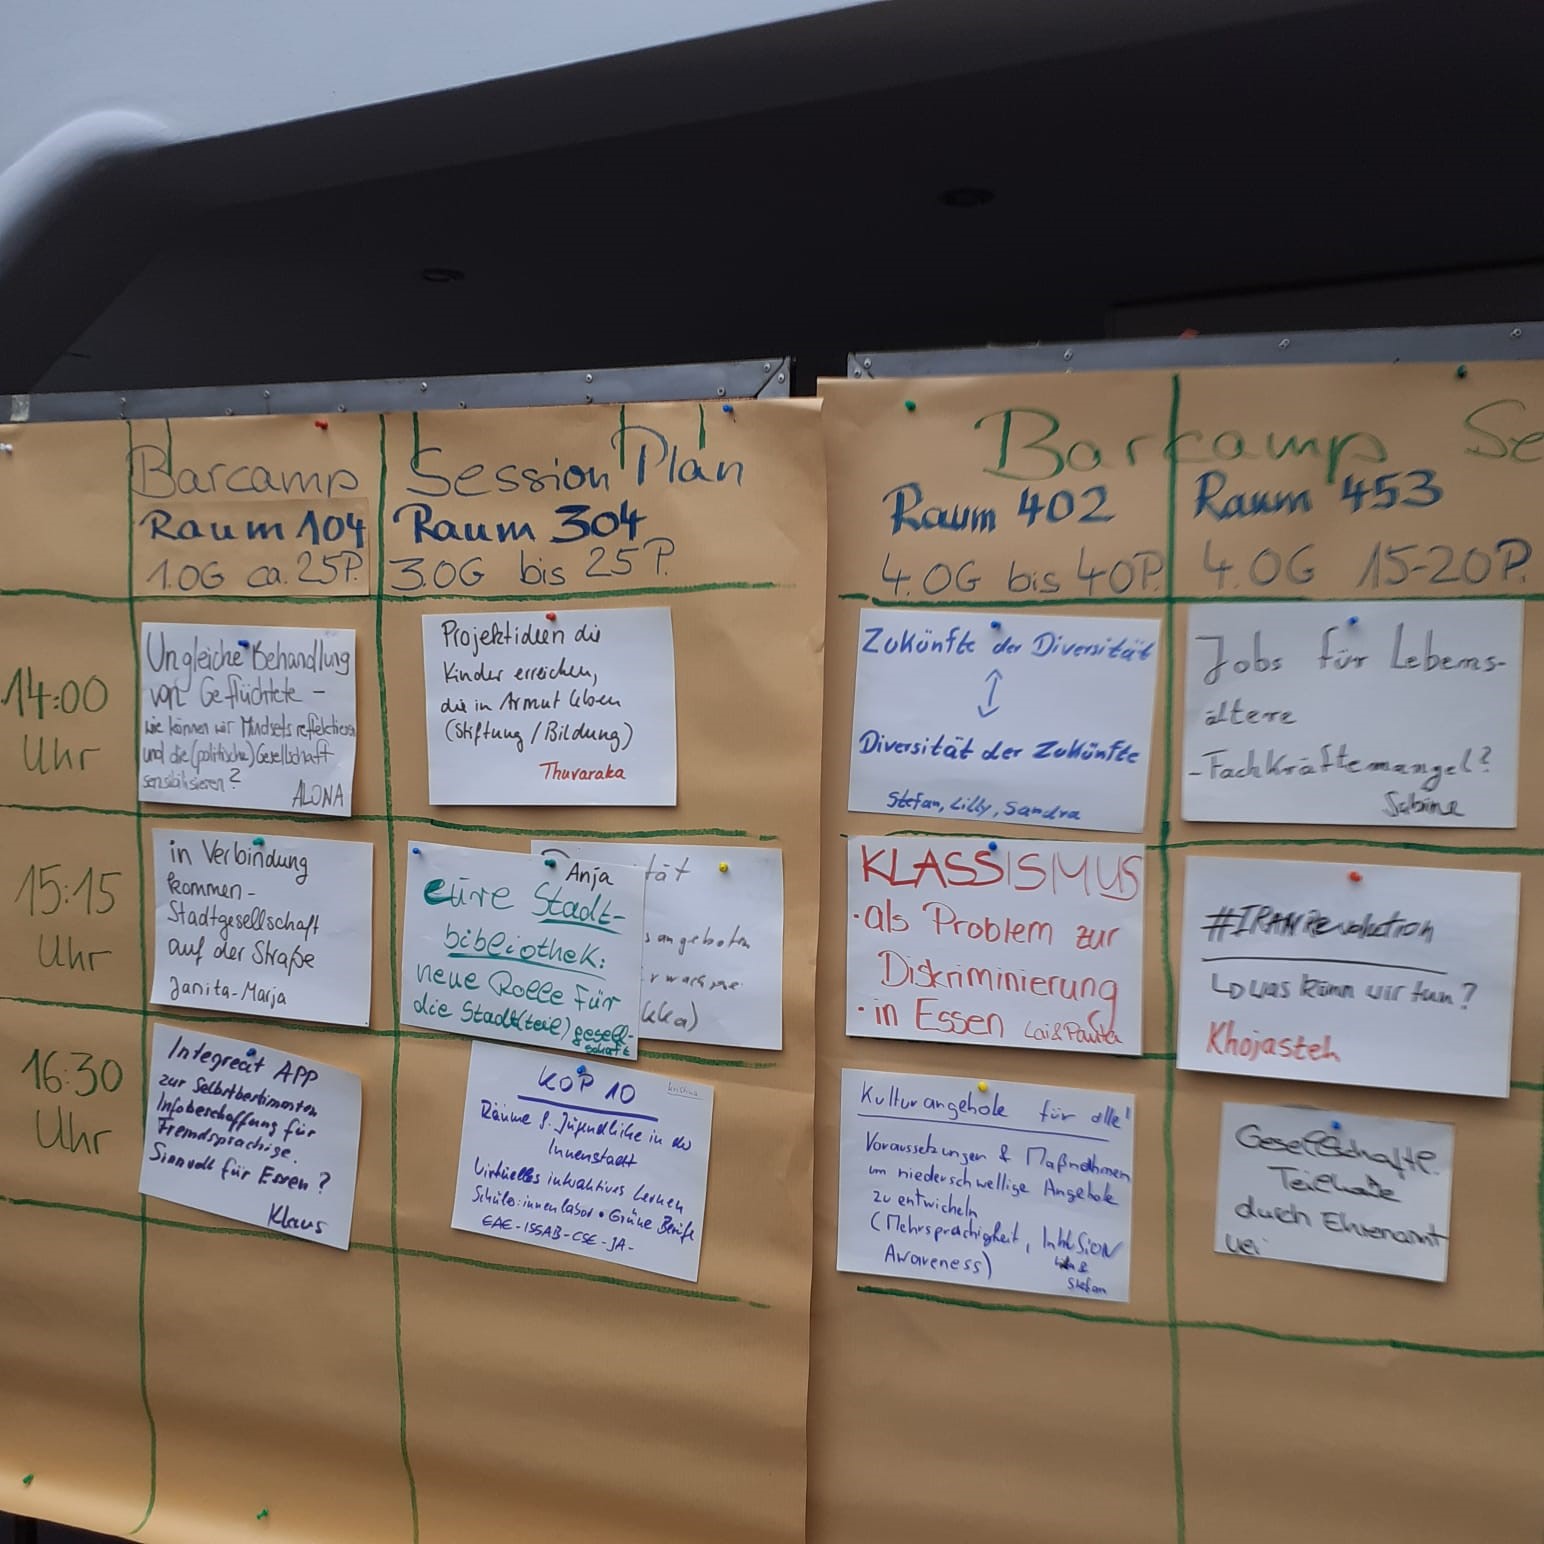 Barcamp Session Plan
Raum 104
1.OG ca. 25P.
Raum 304
3.OG bis 25P.
Barcamp Se
Raum 402
4.OG bis 40P.
Raum 453
4.OG 15-20P.
14:00
Uhr
Ungleiche Behandlung
von Geflüchtete -
wie können wir Mindsets reflektieren
und die (politische) Gesellschaft
sensibilisieren?
ALONA
Projektideen die
Kinder erreichen,
die in Armut leben
(Stiftung / Bildung)
Thuvaraka
Zukünfte der Diversität
Diversität der Zukünfte
Stefan, Lilly, Sandra
Jobs für Lebens-
ältere
- Fachkräftemangel?
Sabine
15:15
Uhr
in Verbindung
kommen -
Stadtgesellschaft
auf der Straße
Janita-Marja
Anja
eure Stadt-
bibliothek:
neue Rolle für
die Stadt(teil)gesell-
schaft
tät
angeboten
kka)
KLASSISMUS
· als Problem zur
Diskriminierung
· in Essen
#IRANRevolution
was kann wir tun?
Khojasteh
16:30
Uhr
Integreat APP
zur Selbstbestimmten
Infobeschaffung für
Fremdsprachige.
Sinnvoll für Essen?
Klaus
KOP 10
Kristina
Räume f. Jugendliche in der
Innenstadt
Virtuelles interaktives Lernen
Schüler:innenlabor • Grüne Berufe
EAE-ISSAB-CSE-JA-
Kulturangebote für alle!
Voraussetzungen & Maßnahmen
um niederschwellige Angebote
zu entwickeln
(Mehrsprachigkeit, Inklusion
Awareness)
&
Stefan
Gesellschaftl.
Teilhabe
durch Ehrenamt